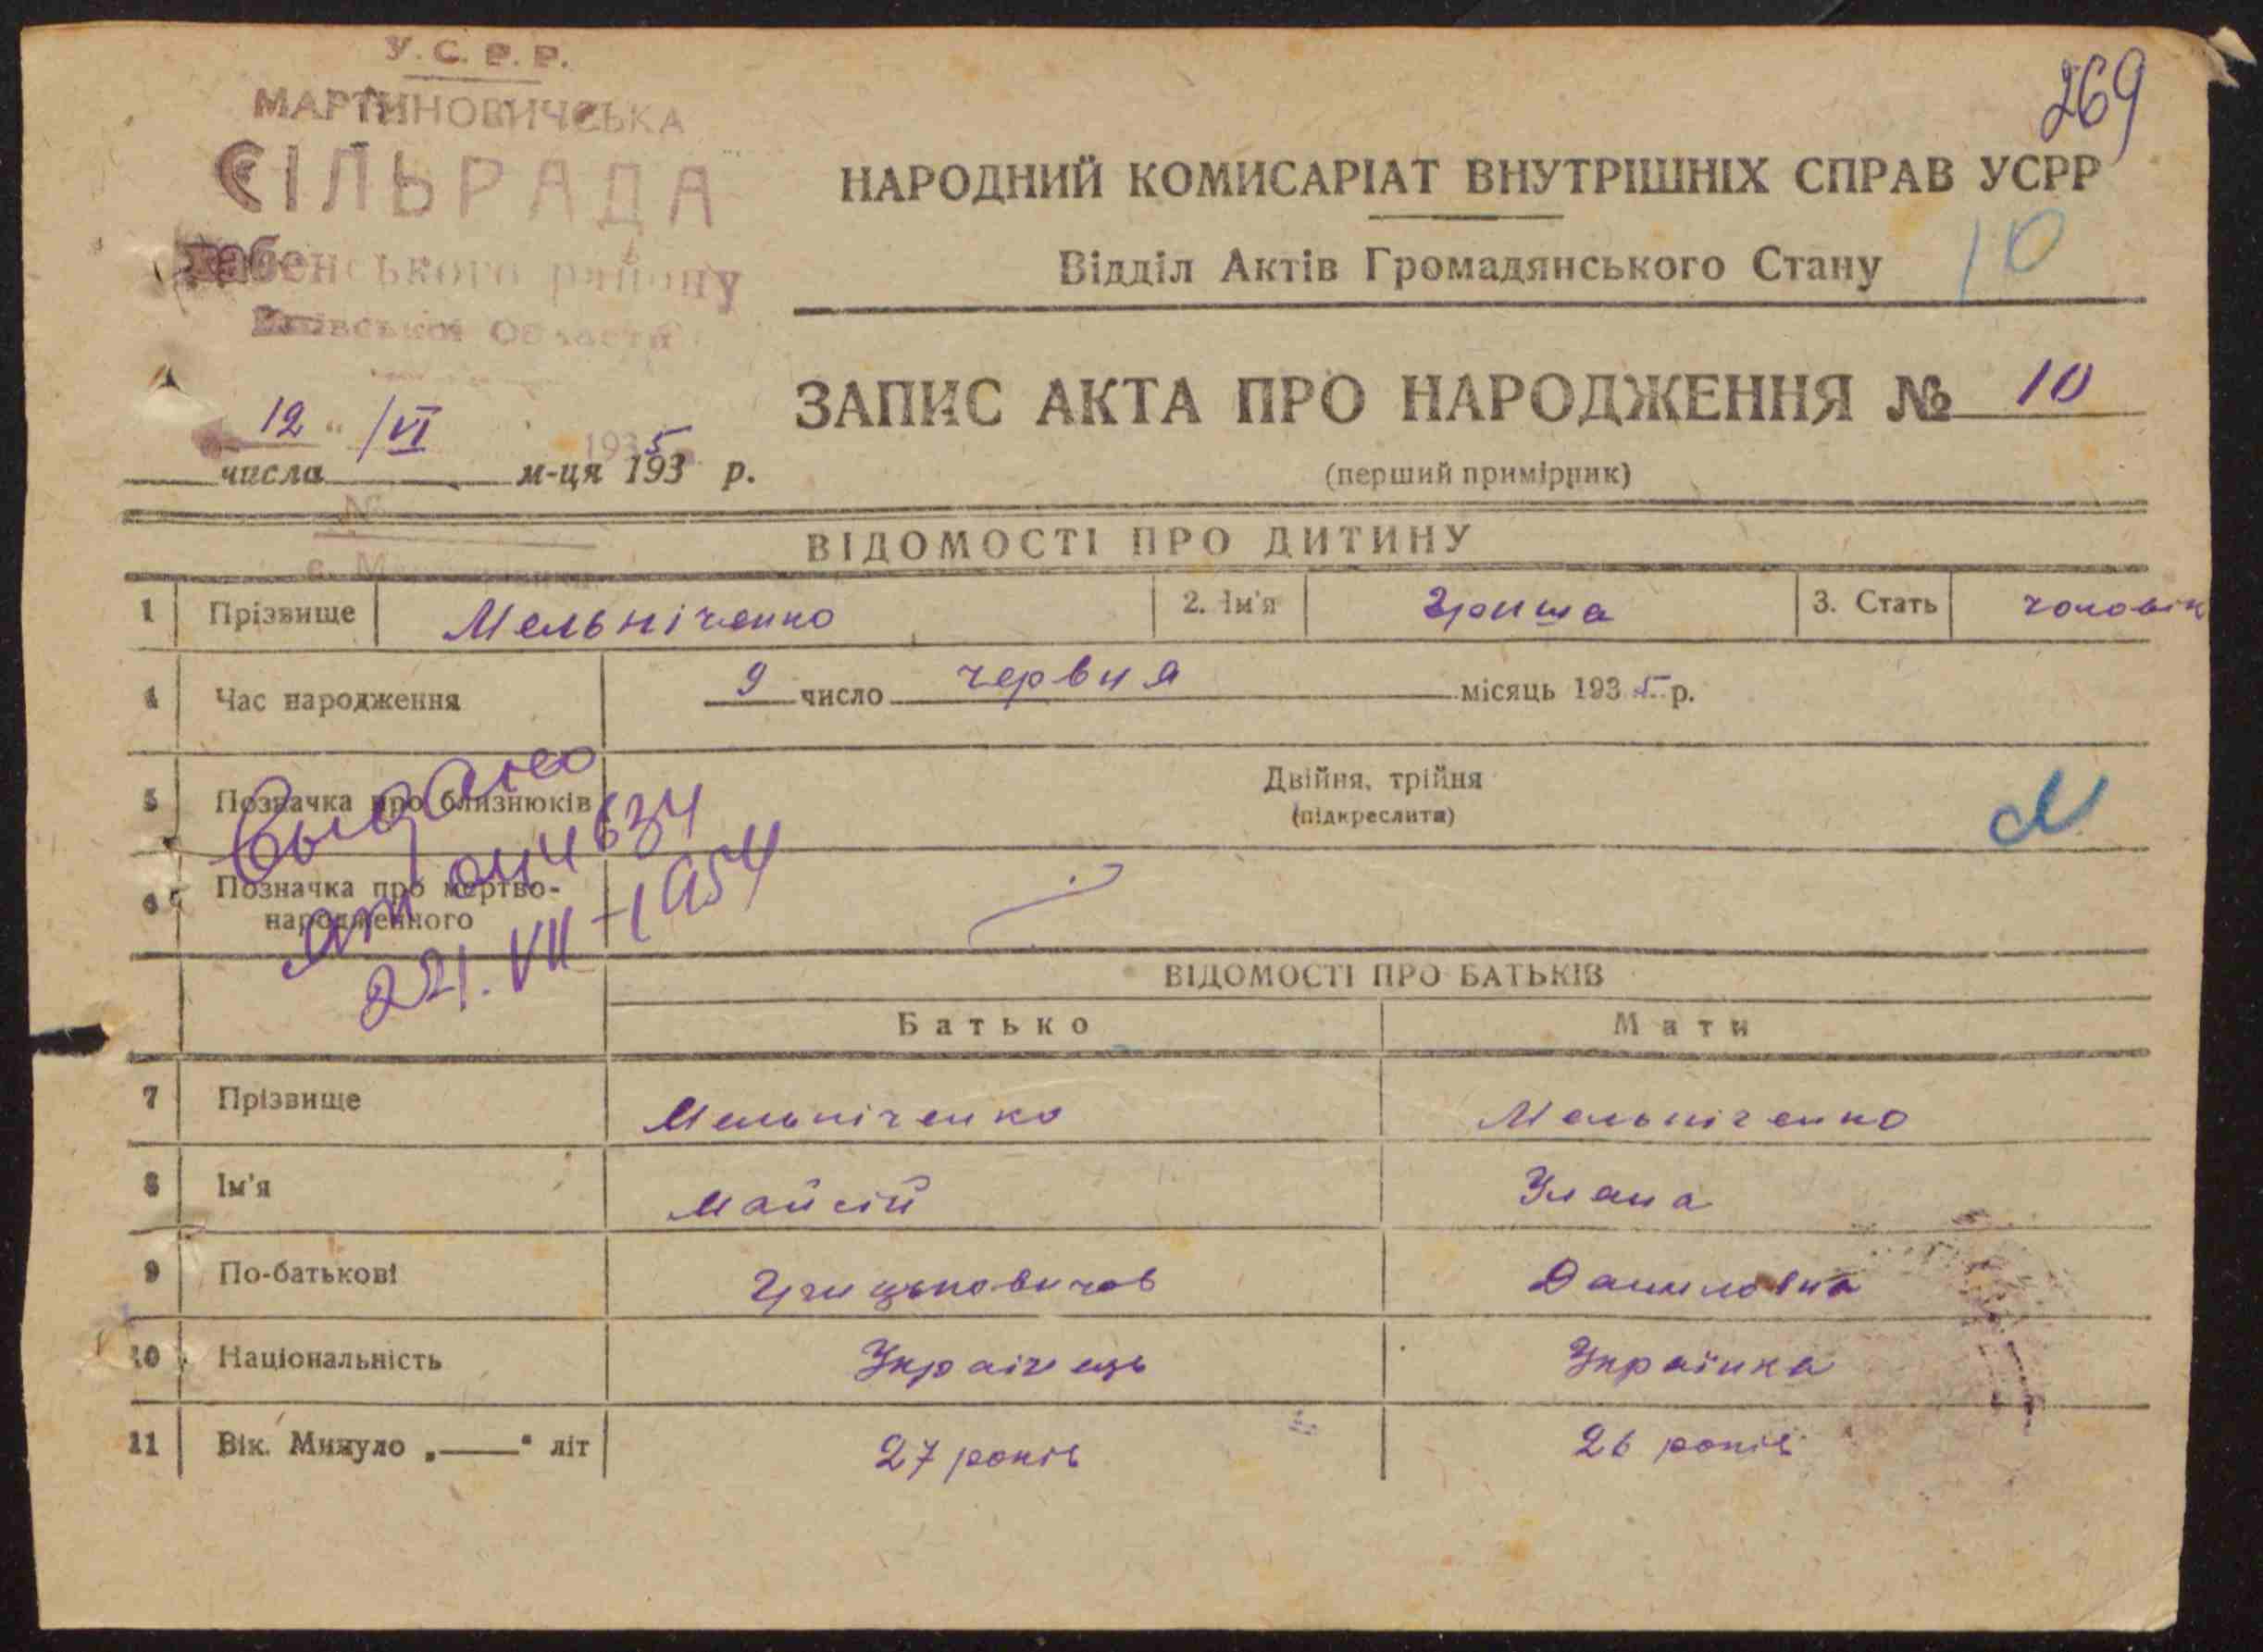 269
У.С.Р.Р.
МАРТИНОВИЧСЬКА
СІЛЬРАДА
Хабенського району
Київської Области
НАРОДНИЙ КОМИСАРІАТ ВНУТРІШНІХ СПРАВ УСРР
Відділ Актів Громадянського Стану 10
ЗАПИС АКТА ПРО НАРОДЖЕННЯ № 10
(перший примірник)
12 " /VI 1935
числа м-ця 193 р.
№
ВІДОМОСТІ ПРО ДИТИНУ
1 Прізвище Мельніченко 2. Ім'я Гриша 3. Стать чоловік
4 Час народження 9 число червня місяць 1935 р.
5 Позначка про близнюків Двійня, трійня
(підкреслити)
М
6 Позначка про мертво-
народженного
Выдано
221. VII-1954
ВІДОМОСТІ ПРО БАТЬКІВ
Батько Мати
7 Прізвище Мельніченко Мельніченко
8 Ім'я Майсій Улана
9 По-батькові Грицьковичов Даниловна
10 Національність Українець Українка
11 Вік. Минуло „——" літ 27 років 26 років